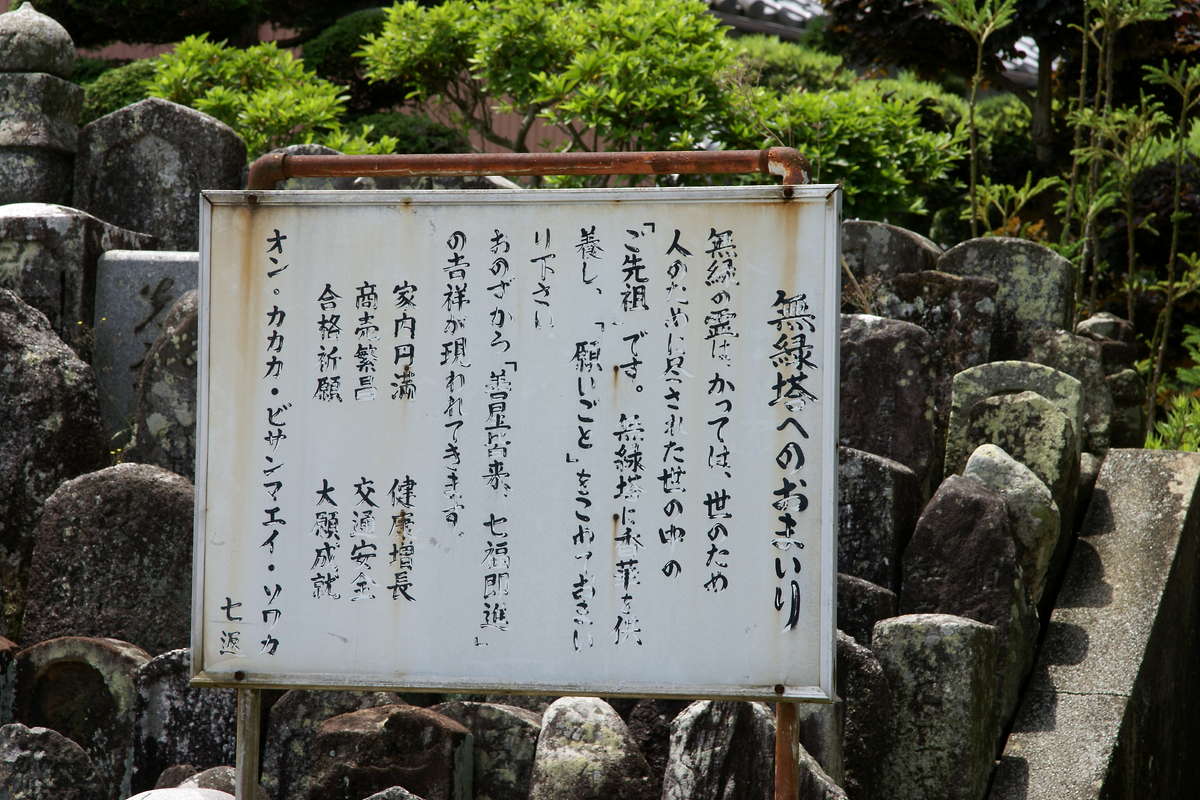 無緑塔へのおまいり
無縁の霊は、かっては、世のため
人のために尽された世の中の
「ご先祖」です。無緑塔に香華を供
養し、「願いごと」をこめておまいい
り下さい
おのずから「善星皆来、七福即進」
の吉祥が現われてきます。
家内円満　健康増長
商売繁昌　交通安全
合格祈願　大願成就
オン。カカカ・ビサンマ・エイ・ソワカ
七遍